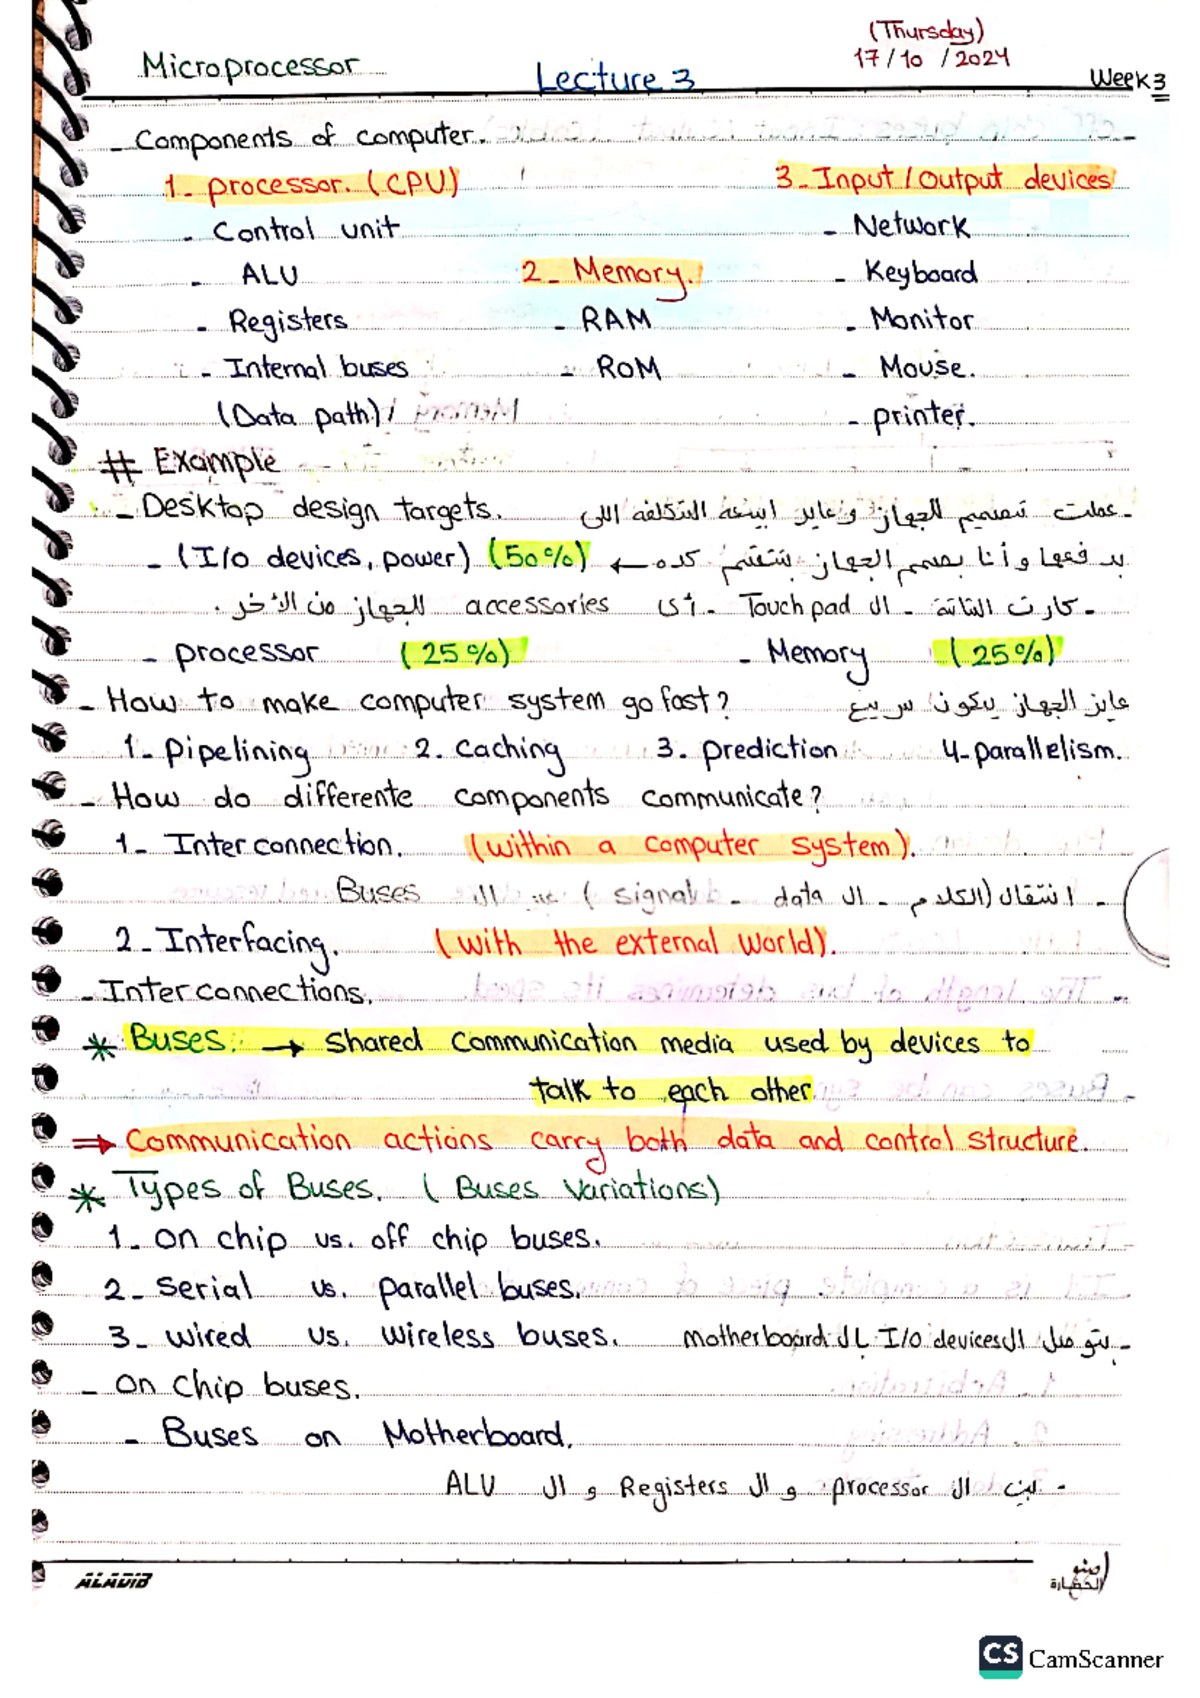 (Thursday)
17/10/2024
Microprocessor
Lecture 3
Week 3
- Components of computer.
1- processor. (CPU)
- Control unit
- ALU
- Registers
- Internal buses
(Data path)
2- Memory.
- RAM
- ROM
3- Input/Output devices
- Network
- Keyboard
- Monitor
- Mouse.
- printer.
# Example
- Desktop design targets.
- عملت تصميم للجهاز وعايز التكلفه اللى
- (I/o devices, power) (50%) ← بدفعها وأنا بصمم الجهاز بتتقسم كده
- كارت الشاشة - ال Touch pad - أى accessories للجهاز من الأخر.
- processor (25%)
- Memory (25%)
- How to make computer system go fast? عايز الجهاز يكون سريع
1- Pipelining 2. Caching 3. prediction 4- parallelism.
- How do differente components communicate?
1- Inter connection. (within a computer system).
- انتقال (الكلام - ال data - signal) عبر ال Buses
2- Interfacing. (with the external world).
- Inter connections.
* Buses. → Shared Communication media used by devices to
talk to each other.
⇒ Communication actions carry both data and control structure.
* Types of Buses. (Buses Variations)
1- on chip vs. off chip buses.
2- Serial vs. parallel buses.
3- wired vs. wireless buses.
- بتوصل ال I/o devices بال motherboard
- on chip buses.
- Buses on Motherboard.
- بين ال processor و ال Registers و ال ALU
ALADIB
صنو
الحضارة
CS CamScanner